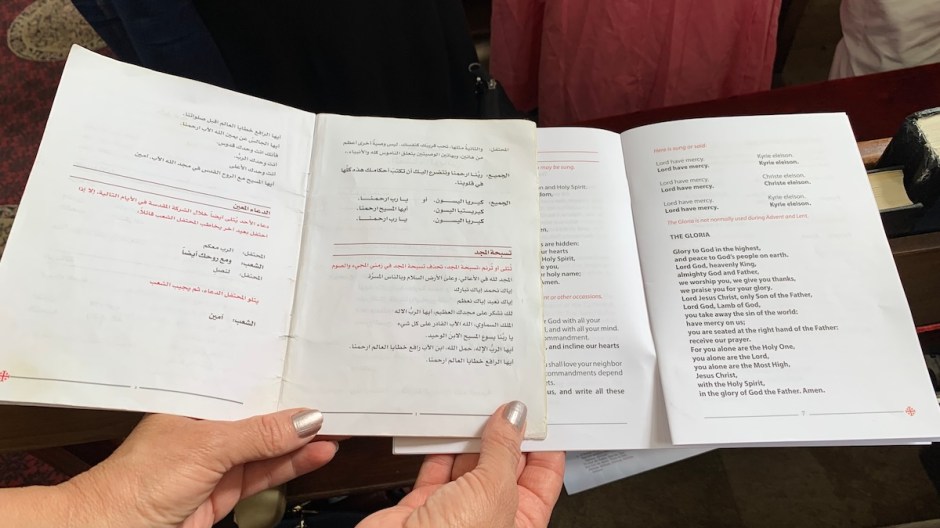 أيها الرافع خطايا العالم اقبل صلواتنا.
أيها الجالس عن يمين الآب ارحمنا.
فأنك انت وحدك قدوس.
انت وحدك الربّ
انت وحدك الأعلى
أيها المسيح مع الروح القدس في مجد الله الآب. آمين
الدعاء المعين
دعاء الأحد يُتلى ايضاً خلال الشركة المقدسة في الأيام التالية، إلا إذا
المحتفل: الرب معكم
الشعب: ومع روحك أيضاً
المحتفل: لنصلِّ
يتلو المحتفل الدعاء، ثم يجيب الشعب
الشعب: آمين
المحتفل: والثانية مثلها: تحب قريبك كنفسك. ليس وصية أخرى أعظم
من هاتين. وبهاتين الوصيتين يتعلق الناموس كله والأنبياء.
الجميع: ربنا ارحمنا ونتضرع إليك أن تكتب أحكامك هذه كلها
في قلوبنا.
الجميع: كيريا اليسون أو يا رب ارحمنا.
كيريستيا اليسون أيها المسيح ارحمنا.
كيريا اليسون يا رب ارحمنا.
تسبحة المجد
تُتلى أو تُرنم تسبحة المجد، تحذف تسبحة المجد في زمني المجيء والصوم
المجد لله في الأعالي. وعلى الأرض السلام وبالناس المسرّة.
إياك نحمد إياك نبارك
إياك نعبد إياك نعظم
لك نشكر على مجدك العظيم. أيها الربّ الإله
الملك السماوي، الله الآب القادر على كل شيء
يا ربّنا يسوع المسيح الابن الوحيد.
أيها الربّ الإله، حمل الله، ابن الآب رافع خطايا العالم ارحمنا.
أيها الرافع خطايا العالم ارحمنا.
may be sung.
and Holy Spirit,
are hidden:
our hearts
Holy Spirit,
you,
holy name;
Amen.
or other occasions.
God with all your
and with all your mind.
commandment.
and incline our hearts
shall love your neighbor
commandments depend
us, and write all these
Here is sung or said
Lord have mercy. Kyrie eleison.
Lord have mercy. Kyrie eleison.
Lord have mercy. Christe eleison.
Lord have mercy. Christe eleison.
Lord have mercy. Kyrie eleison.
Lord have mercy. Kyrie eleison.
The Gloria is not normally used during Advent and Lent.
THE GLORIA
Glory to God in the highest,
and peace to God's people on earth.
Lord God, heavenly King,
almighty God and Father,
we worship you, we give you thanks,
we praise you for your glory.
Lord Jesus Christ, only Son of the Father,
Lord God, Lamb of God,
you take away the sin of the world:
have mercy on us;
you are seated at the right hand of the Father:
receive our prayer.
For you alone are the Holy One,
you alone are the Lord,
you alone are the Most High,
Jesus Christ,
with the Holy Spirit,
in the glory of God the Father. Amen.